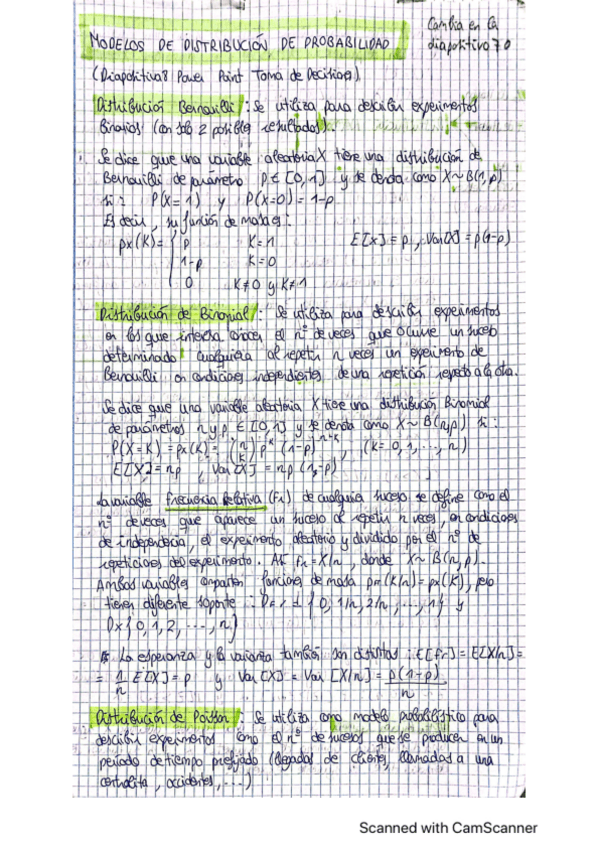 Cambia en la
diapositiva 70
MODELOS DE DISTRIBUCIÓN DE PROBABILIDAD
(Diapositivas Power Point Toma de Decisiones)
Distribución Bernouilli: Se utiliza para describir experimentos
binarios (con sólo 2 posibles resultados).
Se dice que una variable aleatoria X tiene una distribución de
Bernouilli de parámetro p ∈ [0,1] y se denota como X~B(1,p)
si: P(X=1) y P(X=0)=1-p
Es decir, su función de masa es:
px(K)= { p K=1 E[X]=p, Var[X]=p(1-p)
1-p K=0
0 K≠0 y K≠1
Distribución de Binomial: Se utiliza para describir experimentos
en los que interesa conocer el nº de veces que ocurre un suceso
determinado cualquiera al repetir n veces un experimento de
Bernouilli en condiciones independientes de una repetición respecto a la otra.
Se dice que una variable aleatoria X tiene una distribución Binomial
de parámetros n y p ∈ [0,1] y se denota como X~B(n,p) si:
P(X=K)=px(K)= (n K) p^K (1-p)^n-K, (K=0,1,...,n)
E[X]=np, Var[X]=np(1-p)
La variable Frecuencia Relativa (Fr) de cualquier suceso se define como el
nº de veces que aparece un suceso al repetir n veces, en condiciones
de independencia, el experimento aleatorio y dividido por el nº de
repeticiones del experimento. Así fr=X/n, donde X~B(n,p).
Ambas variables comparten funciones de masa pfr(K/n)=px(K), pero
tienen diferente soporte: {0,1/n,2/n,...,1} y
Dx{0,1,2,...,n}
La esperanza y la varianza también son distintas: E[fr]=E[X/n]=
= 1/n E[X]=p y Var[X]=Var[X/n]= p(1-p)/n
Distribución de Poisson: Se utiliza como modelo probabilístico para
describir experimentos como el nº de sucesos que se producen en un
período de tiempo prefijado (llegadas de clientes, llamadas a una
centralita, accidentes,...)
Scanned with CamScanner